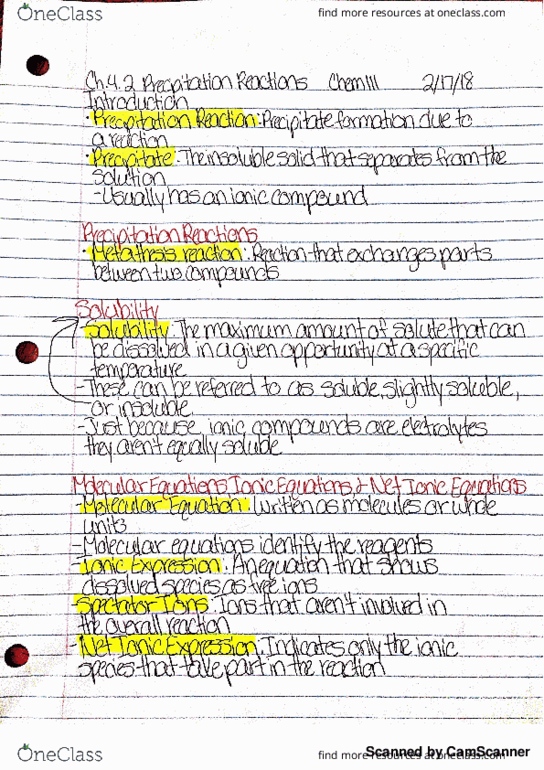 OneClass
find more resources at oneclass.com
Ch.4.2 Precipitation Reactions Chem111 2/17/18
Introduction
· Precipitation Reaction: Precipitate formation due to
a reaction
· Precipitate: The insoluble solid that separates from the
solution
- Usually has an ionic compound
Precipitation Reactions
· Metathesis reaction: Reaction that exchanges parts
between two compounds
Solubility
- Solubility: The maximum amount of solute that can
be dissolved in a given opportunity at a specific
temperature
- These can be referred to as soluble, slightly soluble,
or insoluble
- Just because ionic compounds are electrolytes
they aren't equally soluble
Molecular Equations, Ionic Equations, & Net Ionic Equations
· Molecular Equation: Written as molecules or whole
units
- Molecular equations identify the reagents
- Ionic Expression: An equation that shows
dissolved species as free ions
Spectator Ions: Ions that aren't involved in
the overall reaction
· Net Ionic Expression: Indicates only the ionic
species that take part in the reaction
OneClass
find more resources at oneclass.com
Scanned by CamScanner